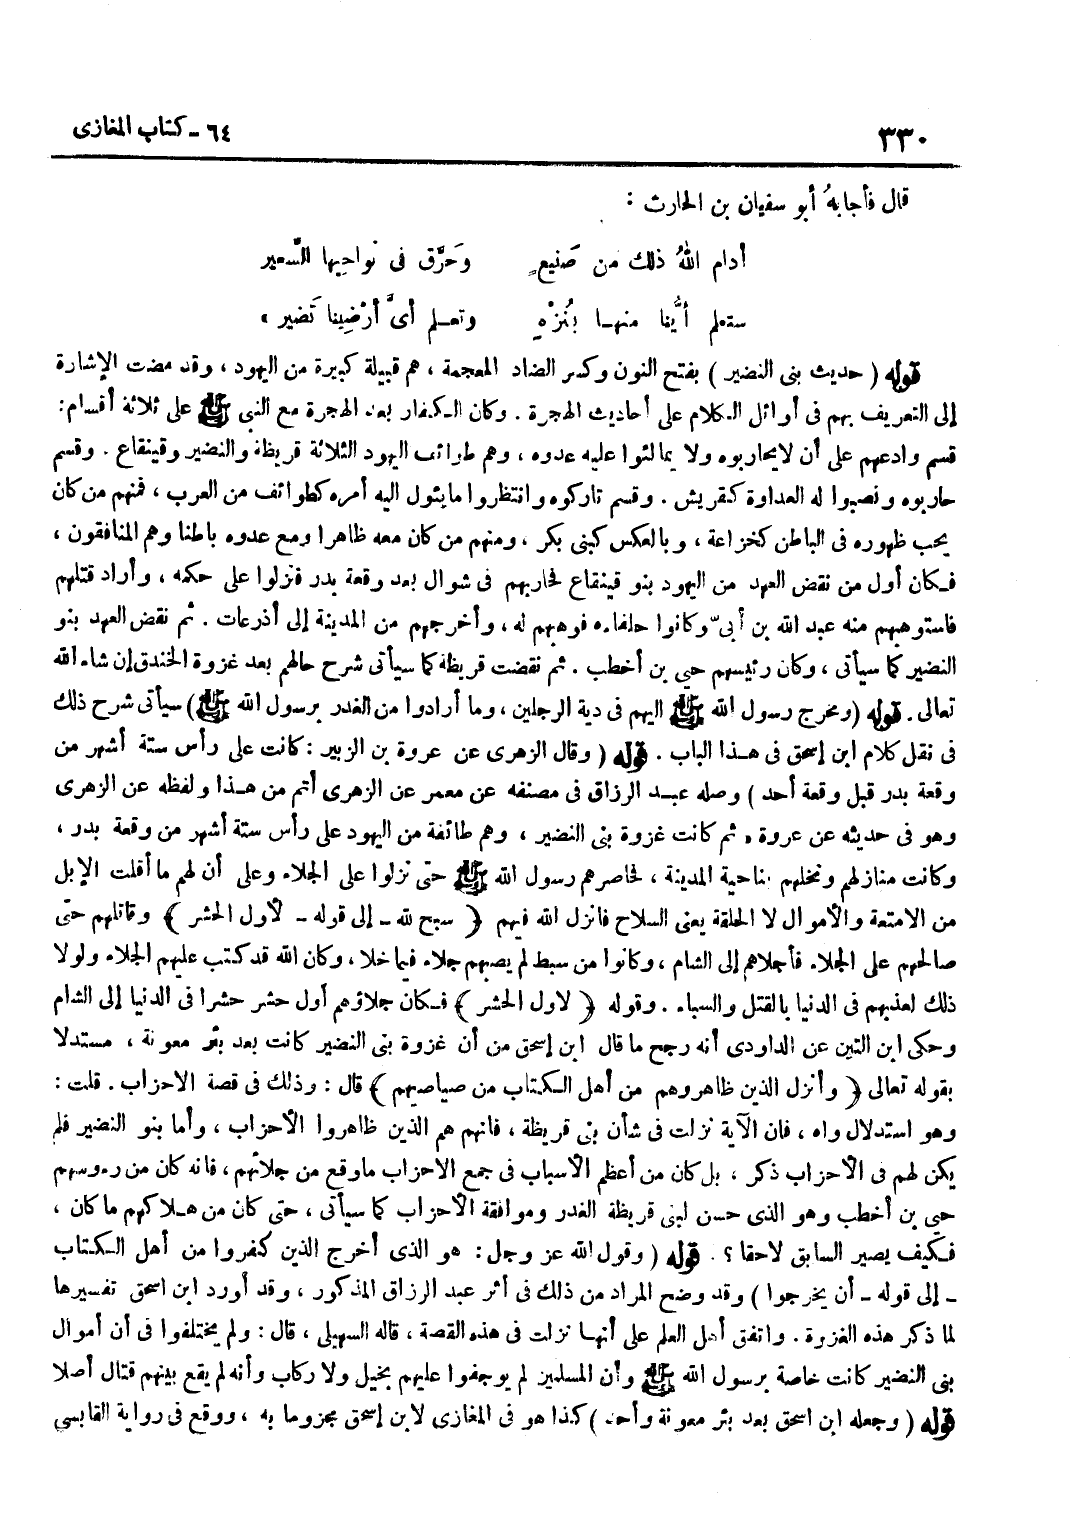 ٣٣٠
٦٤ - كتاب المغازى
قال فأجابهُ أبو سفيان بن الحارث :
أدام اللهُ ذلك من صَنيعٍ وحَرَّق فى نواحيها السَّعير
ستعلم أيُّنا منهـا بنُزْهٍ وتعـلم أىَّ أرْضِينا تَضير »
قوله ( حديث بنى النضير ) بفتح النون وكسر الضاد المعجمة ، هم قبيلة كبيرة من اليهود ، وقد مضت الإشارة
إلى التعريف بهم فى أوائل الـكلام على أحاديث الهجرة . وكان الـكفار بعد الهجرة مع النبى ﷺ على ثلاثة أقسام :
قسم وادعهم على أن لايحاربوه ولا يمالئوا عليه عدوه ، وهم طوائف اليهود الثلاثة قريظة والنضير وقينقاع . وقسم
حاربوه ونصبوا له العداوة كقريش . وقسم تاركوه وانتظروا مايئول اليه أمره كطوائف من العرب ، فمنهم من كان
يحب ظهوره فى الباطن كخزاعة ، وبالعكس كبنى بكر ، ومنهم من كان معه ظاهرا ومع عدوه باطنا وهم المنافقون ،
فـكان أول من نقض العهد من اليهود بنو قينقاع فحاربهم فى شوال بعد وقعة بدر فنزلوا على حكمه ، وأراد قتلهم
فاستوهبهم منه عبد الله بن أبىّ وكانوا حلفاءه فوهبهم له ، وأخرجهم من المدينة إلى أذرعات . ثم نقض العهد بنو
النضير كما سيأتى ، وكان رئيسهم حيى بن أخطب . ثم نقضت قريظة كما سيأتى شرح حالهم بعد غزوة الخندق إن شاء الله
تعالى . قوله ( ومخرج رسول الله ﷺ اليهم فى دية الرجلين ، وما أرادوا من الغدر برسول الله ﷺ ) سيأتى شرح ذلك
فى نقل كلام ابن إسحق فى هـذا الباب . قوله ( وقال الزهرى عن عروة بن الزبير : كانت على رأس ستة أشهر من
وقعة بدر قبل وقعة أحد ) وصله عبـد الرزاق فى مصنفه عن معمر عن الزهرى أتم من هـذا ولفظه عن الزهرى
وهو فى حديثه عن عروة « ثم كانت غزوة بنى النضير ، وهم طائفة من اليهود على رأس ستة أشهر من وقعة بدر ،
وكانت منازلهم ونخلهم بناحية المدينة ، فحاصرهم رسول الله ﷺ حتى نزلوا على الجلاء وعلى أن لهم ما أقلت الإبل
من الامتعة والأموال لا الحلقة يعنى السلاح فانزل الله فيهم ﴿ سبح لله - إلى قوله - لأول الحشر ﴾ وقاتلهم حتى
صالحهم على الجلاء فأجلاهم إلى الشام ، وكانوا من سبط لم يصبهم جلاء فيما خلا ، وكان الله قد كتب عليهم الجلاء ولولا
ذلك لعذبهم فى الدنيا بالقتل والسباء . وقوله ﴿ لاول الحشر ﴾ فـكان جلاؤهم أول حشر حشرا فى الدنيا إلى الشام
وحكى ابن التين عن الداودى أنه رجح ما قال ابن إسحق من أن غزوة بنى النضير كانت بعد بئر معونة ، مستدلا
بقوله تعالى ﴿ وأنزل الذين ظاهروهم من أهل الـكتاب من صياصيهم ﴾ قال : وذلك فى قصة الاحزاب . قلت :
وهو استدلال واه ، فان الآية نزلت فى شأن بنى قريظة ، فانهم هم الذين ظاهروا الأحزاب ، وأما بنو النضير فلم
يكن لهم فى الأحزاب ذكر ، بل كان من أعظم الأسباب فى جمع الاحزاب ماوقع من جلائهم ، فانه كان من رءوسهم
حيى بن أخطب وهو الذى حسن لبنى قريظة الغدر وموافقة الأحزاب كما سيأتى ، حتى كان من هـلاكهم ما كان ،
فـكيف يصير السابق لاحقا ؟ . قوله ( وقول الله عز وجل : هو الذى أخرج الذين كفروا من أهل الـكتاب
- إلى قوله - أن يخرجوا ) وقد وضح المراد من ذلك فى أثر عبد الرزاق المذكور ، وقد أورد ابن اسحق تفسيرها
لما ذكر هذه الغزوة . واتفق أهل العلم على أنهـا نزلت فى هذه القصة ، قاله السهيلى ، قال : ولم يختلفوا فى أن أموال
بنى النضير كانت خاصة برسول الله ﷺ وأن المسلمين لم يوجفوا عليهم بخيل ولا ركاب وأنه لم يقع بينهم قتال أصلا
قوله ( وجعله ابن اسحق بعد بئر معونة وأحد ) كذا هو فى المغازى لابن إسحق مجزوما به ، ووقع فى رواية القابسى